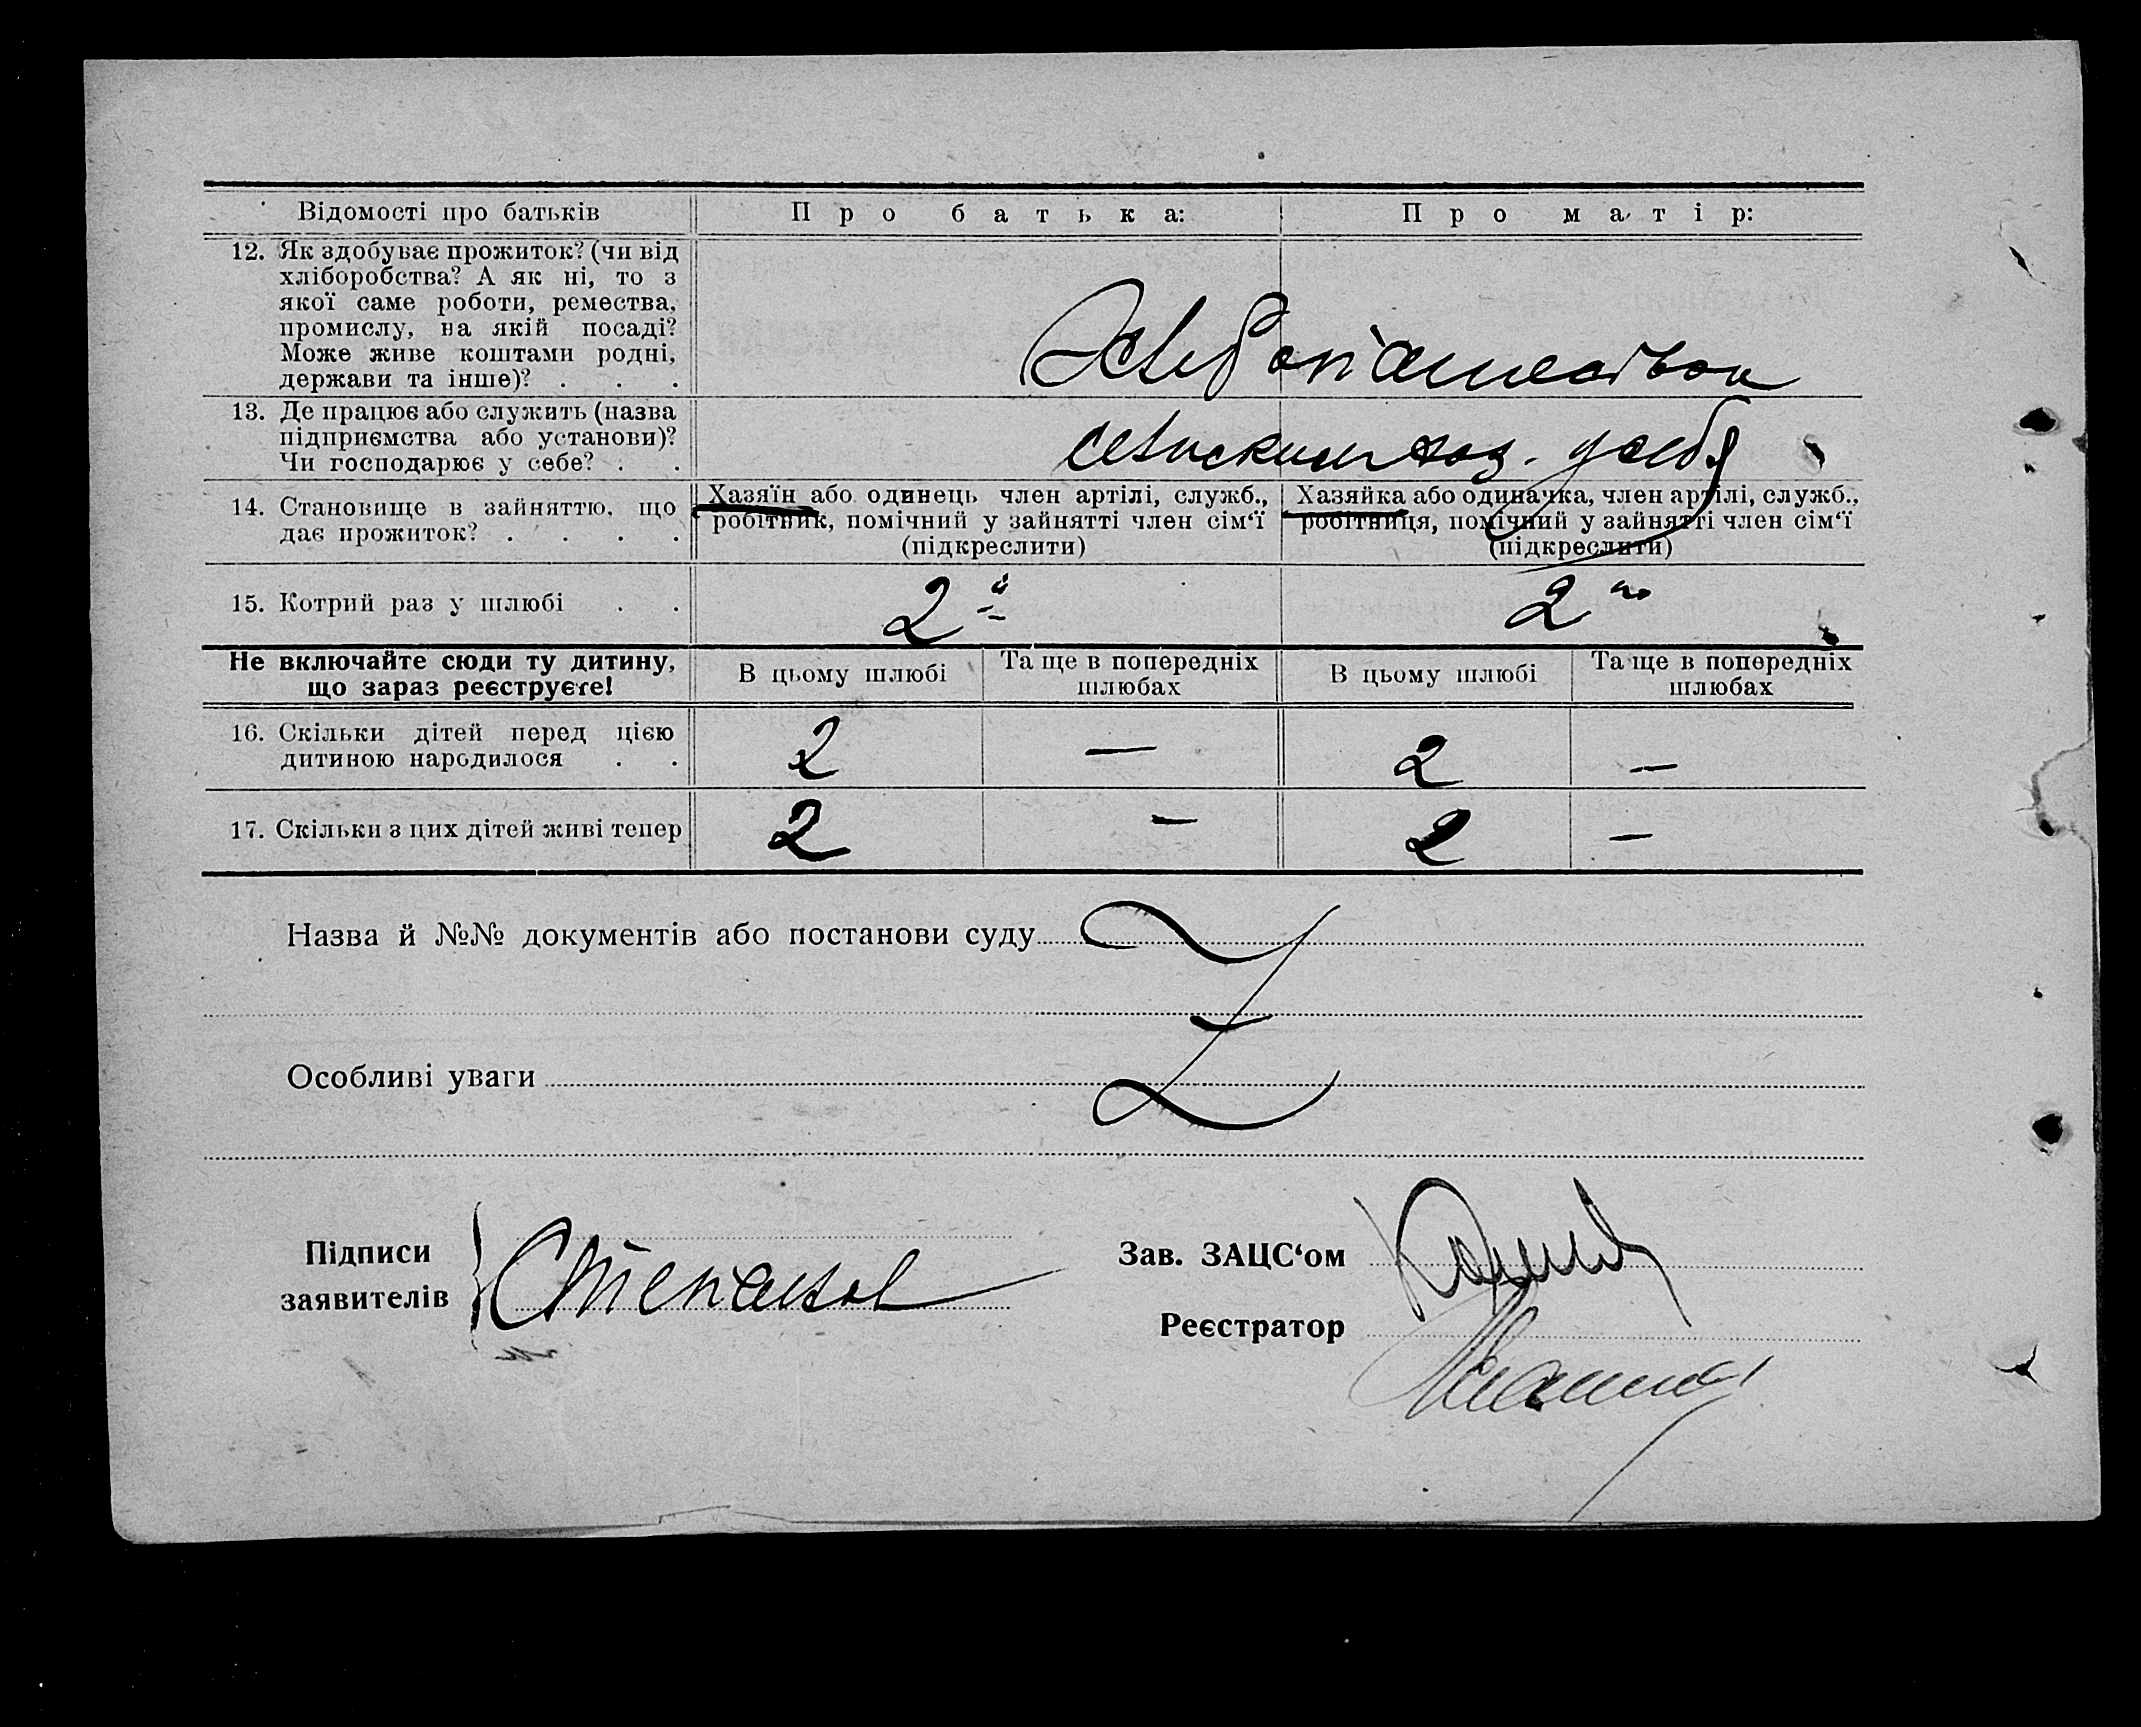 Відомості про батьків
Про батька:
Про матір:
12. Як здобуває прожиток? (чи від
хліборобства? А як ні, то з
якої саме роботи, ремества,
промислу, на якій посаді?
Може живе коштами родні,
держави та інше)? . . .
Хлебопашеством
13. Де працює або служить (назва
підприємства або установи)?
Чи господарює у себе? . .
сельским хоз. у себя
14. Становище в зайняттю, що
дає прожиток? . . . .
Хазяїн або одинець член артілі, служб.,
робітник, помічний у зайнятті член сім‘ї
(підкреслити)
Хазяйка або одиначка, член артілі, служб.,
робітниця, помічний у зайнятті член сім‘ї
(підкреслити)
15. Котрий раз у шлюбі . .
2й
2
Не включайте сюди ту дитину,
що зараз реєструєте!
В цьому шлюбі
Та ще в попередніх
шлюбах
В цьому шлюбі
Та ще в попередніх
шлюбах
16. Скільки дітей перед цією
дитиною народилося . .
2 — 2 —
17. Скільки з цих дітей живі тепер
2 — 2 —
Назва й №№ документів або постанови суду
Особливі уваги
Підписи
заявителів
Степанов
Зав. ЗАЦС‘ом
Реєстратор